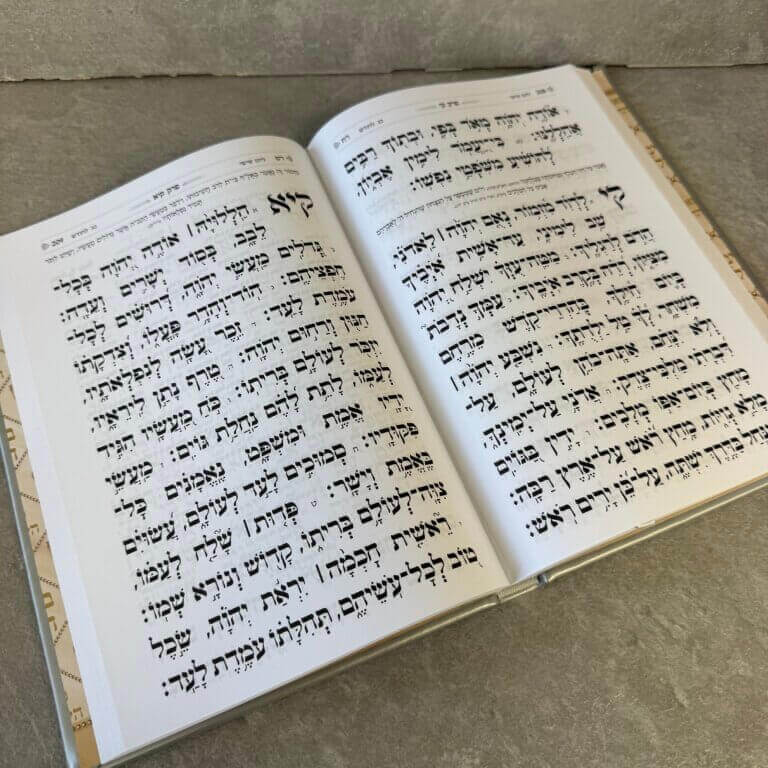 פרק קי
אוֹדֶה יְהוָה מְאֹד בְּפִי, וּבְתוֹךְ רַבִּים
אֲהַלְלֶנּוּ: כִּי־יַעֲמֹד לִימִין אֶבְיוֹן,
לְהוֹשִׁיעַ מִשֹּׁפְטֵי נַפְשׁוֹ:
קי לְדָוִד מִזְמוֹר, נְאֻם יְהוָה | לַאדֹנִי,
שֵׁב לִימִינִי, עַד־אָשִׁית אֹיְבֶיךָ
הֲדֹם לְרַגְלֶיךָ: מַטֵּה־עֻזְּךָ יִשְׁלַח יְהוָה
מִצִּיּוֹן, רְדֵה בְּקֶרֶב אֹיְבֶיךָ: עַמְּךָ נְדָבֹת
בְּיוֹם חֵילֶךָ בְּהַדְרֵי־קֹדֶשׁ מֵרֶחֶם
מִשְׁחָר, לְךָ טַל יַלְדֻתֶיךָ: נִשְׁבַּע יְהוָה |
וְלֹא יִנָּחֵם אַתָּה־כֹהֵן לְעוֹלָם, עַל־
דִּבְרָתִי מַלְכִּי־צֶדֶק: אֲדֹנָי עַל־יְמִינְךָ,
מָחַץ בְּיוֹם־אַפּוֹ מְלָכִים: יָדִין בַּגּוֹיִם
מָלֵא גְוִיּוֹת, מָחַץ רֹאשׁ עַל־אֶרֶץ רַבָּה:
מִנַּחַל בַּדֶּרֶךְ יִשְׁתֶּה, עַל־כֵּן יָרִים רֹאשׁ:
פרק קיא
קיא הַלְלוּיָהּ | אוֹדֶה יְהוָה בְּכָל־
לֵבָב, בְּסוֹד יְשָׁרִים וְעֵדָה:
גְּדֹלִים מַעֲשֵׂי יְהוָה, דְּרוּשִׁים לְכָל־
חֶפְצֵיהֶם: הוֹד־וְהָדָר פָּעֳלוֹ, וְצִדְקָתוֹ
עֹמֶדֶת לָעַד: זֵכֶר עָשָׂה לְנִפְלְאֹתָיו,
חַנּוּן וְרַחוּם יְהוָה: טֶרֶף נָתַן לִירֵאָיו,
יִזְכֹּר לְעוֹלָם בְּרִיתוֹ: כֹּחַ מַעֲשָׂיו הִגִּיד
לְעַמּוֹ, לָתֵת לָהֶם נַחֲלַת גּוֹיִם: מַעֲשֵׂי
יָדָיו אֱמֶת וּמִשְׁפָּט, נֶאֱמָנִים כָּל־
פִּקּוּדָיו: סְמוּכִים לָעַד לְעוֹלָם, עֲשׂוּיִם
בֶּאֱמֶת וְיָשָׁר: פְּדוּת | שָׁלַח לְעַמּוֹ,
צִוָּה־לְעוֹלָם בְּרִיתוֹ, קָדוֹשׁ וְנוֹרָא שְׁמוֹ:
רֵאשִׁית חָכְמָה | יִרְאַת יְהוָה, שֵׂכֶל
טוֹב לְכָל־עֹשֵׂיהֶם, תְּהִלָּתוֹ עֹמֶדֶת לָעַד: